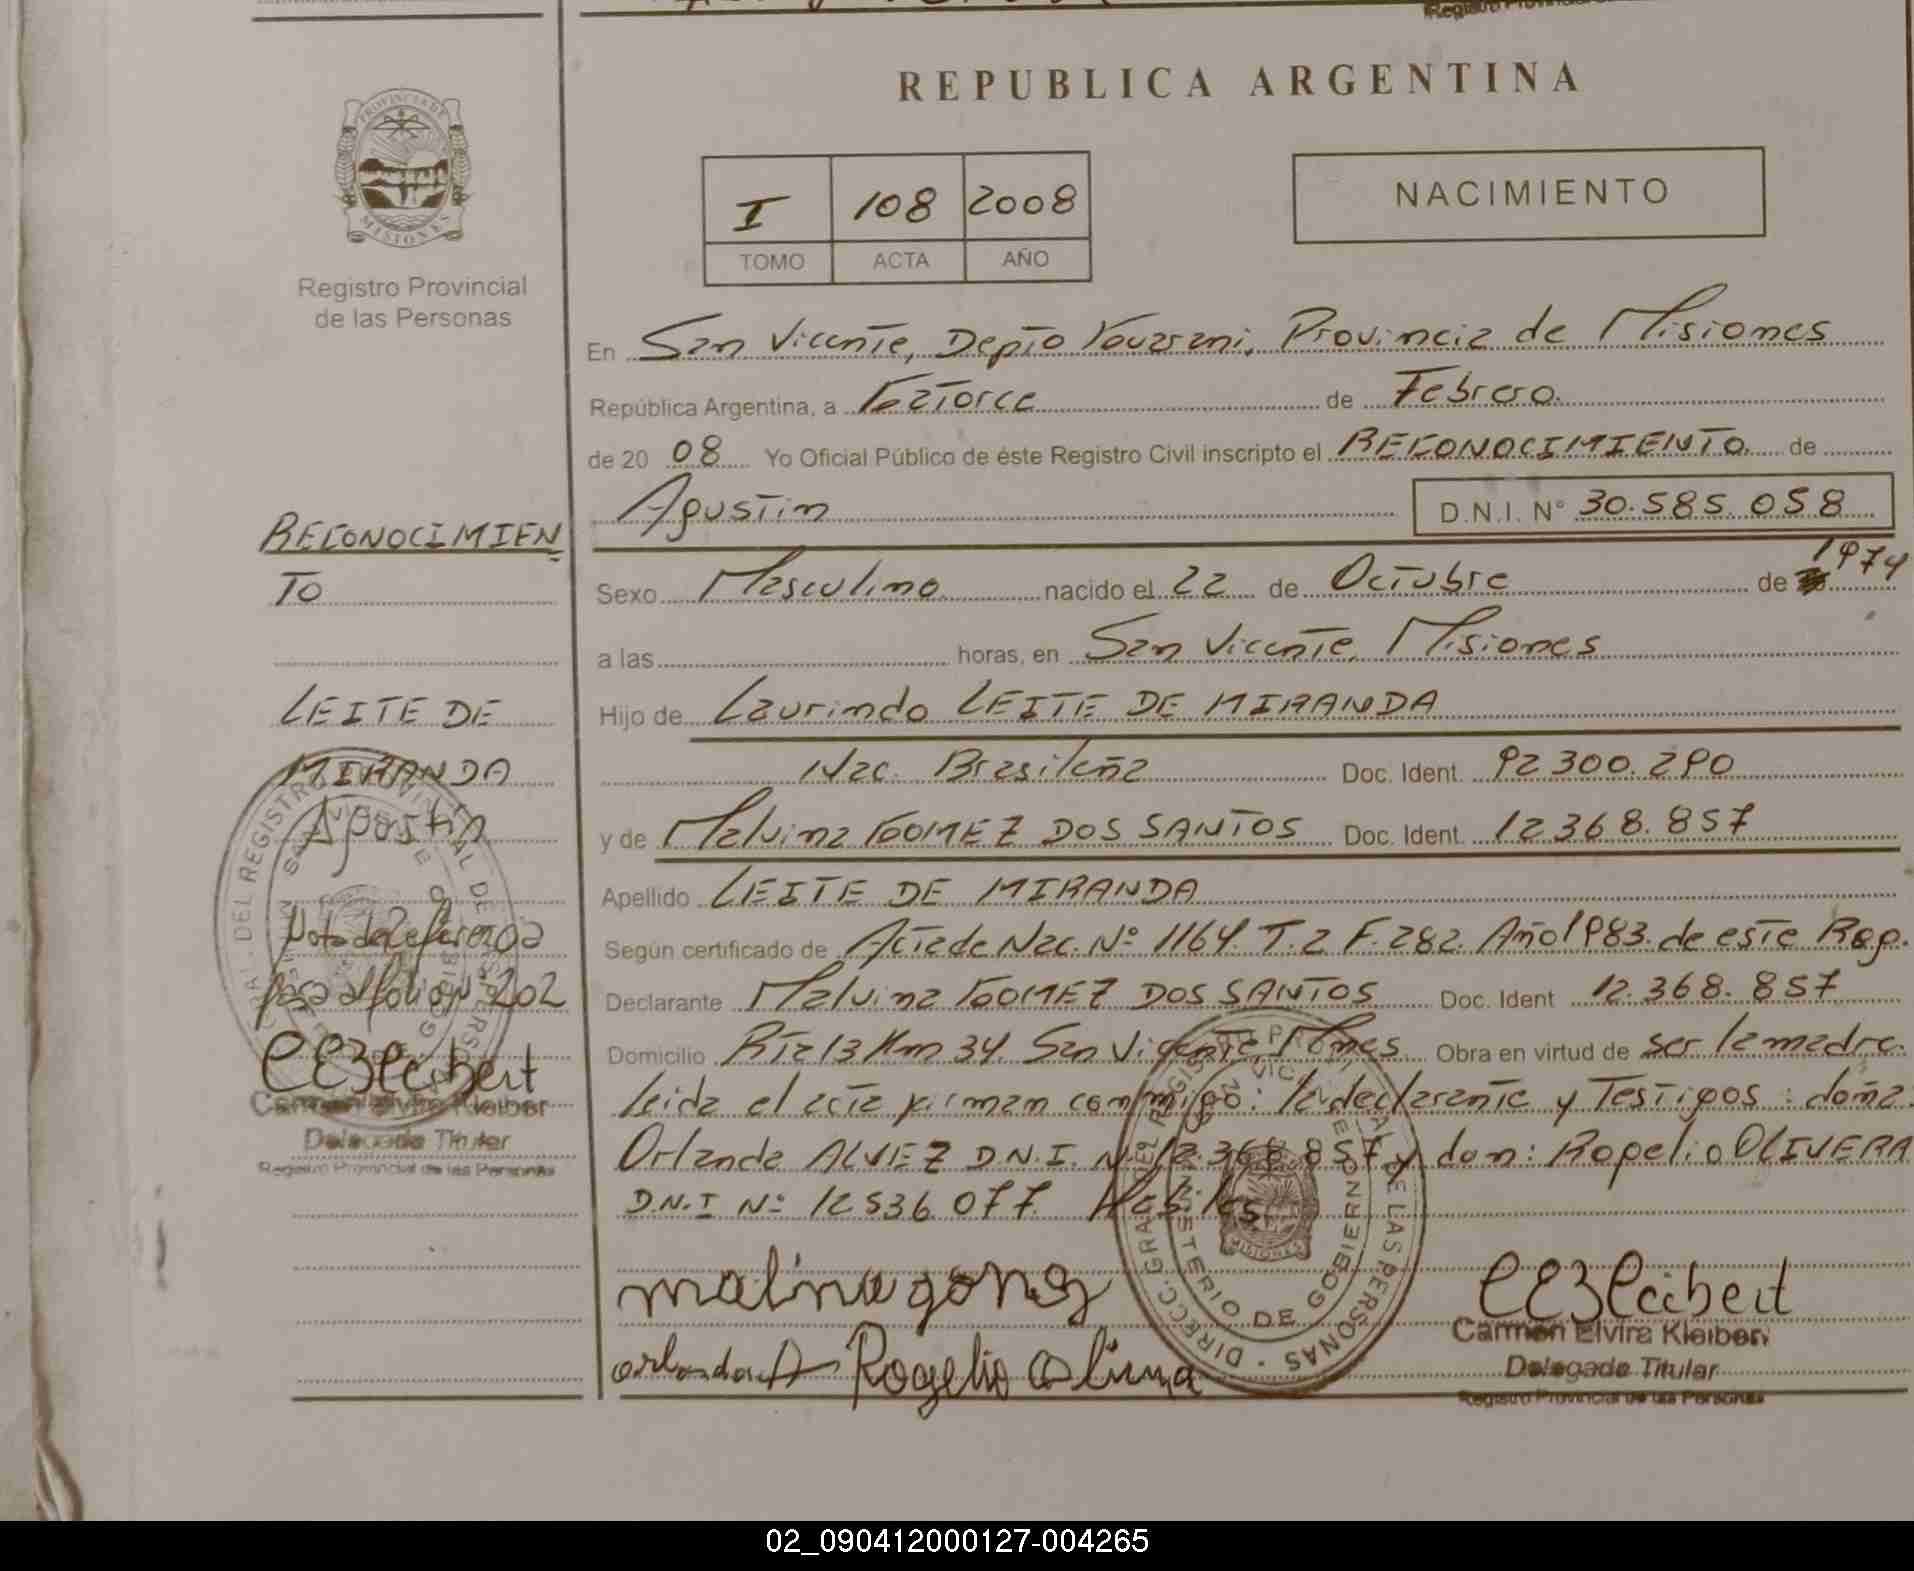 REPUBLICA ARGENTINA
PROVINCIA DE
MISIONES
Registro Provincial
de las Personas
I 108 2008
TOMO ACTA AÑO
NACIMIENTO
En San Vicente, Depto Guarani, Provincia de Misiones
República Argentina, a Catorce de Febrero.
de 20 08 Yo Oficial Público de éste Registro Civil inscripto el RECONOCIMIENTO. de
Agustin D.N.I. N° 30.585.058
Sexo Masculino nacido el 22 de Octubre de 1974
a las horas, en San Vicente, Misiones
Hijo de Laurindo LEITE DE MIRANDA
Nac. Brasileña Doc. Ident. 92.300.290
y de Malvina GOMEZ DOS SANTOS Doc. Ident. 12.368.857
Apellido LEITE DE MIRANDA
Según certificado de Acta de Nac. Nº 1164. T. 2 F. 282. Año 1983. de este Reg.
Declarante Malvina GOMEZ DOS SANTOS Doc. Ident 12.368.857
Domicilio Rta 13 Km 34. San Vicente, Mnes Obra en virtud de ser la madre.
leida el acta firman conmigo: la declarante y Testigos: doña:
Orlanda ALVEZ D.N.I. Nº 12.368.857 y don: Rogelio OLIVERA
D.N.I Nº 12536 077. Habiles
RECONOCIMIEN
TO
LEITE DE
MIRANDA
Agustin
Nota de Referencia
pasa al folio nº 202
Carmen Elvira Kleiber
Delegada Titular
Registro Provincial de las Personas
malina gomz
orlanda A Rogelio Olivera
DIRECC. GRAL. DEL REGISTRO PROVINCIAL DE LAS PERSONAS
MINISTERIO DE GOBIERNO
MISIONES
Carmen Elvira Kleiber
Delegada Titular
Registro Provincial de las Personas
02_090412000127-004265